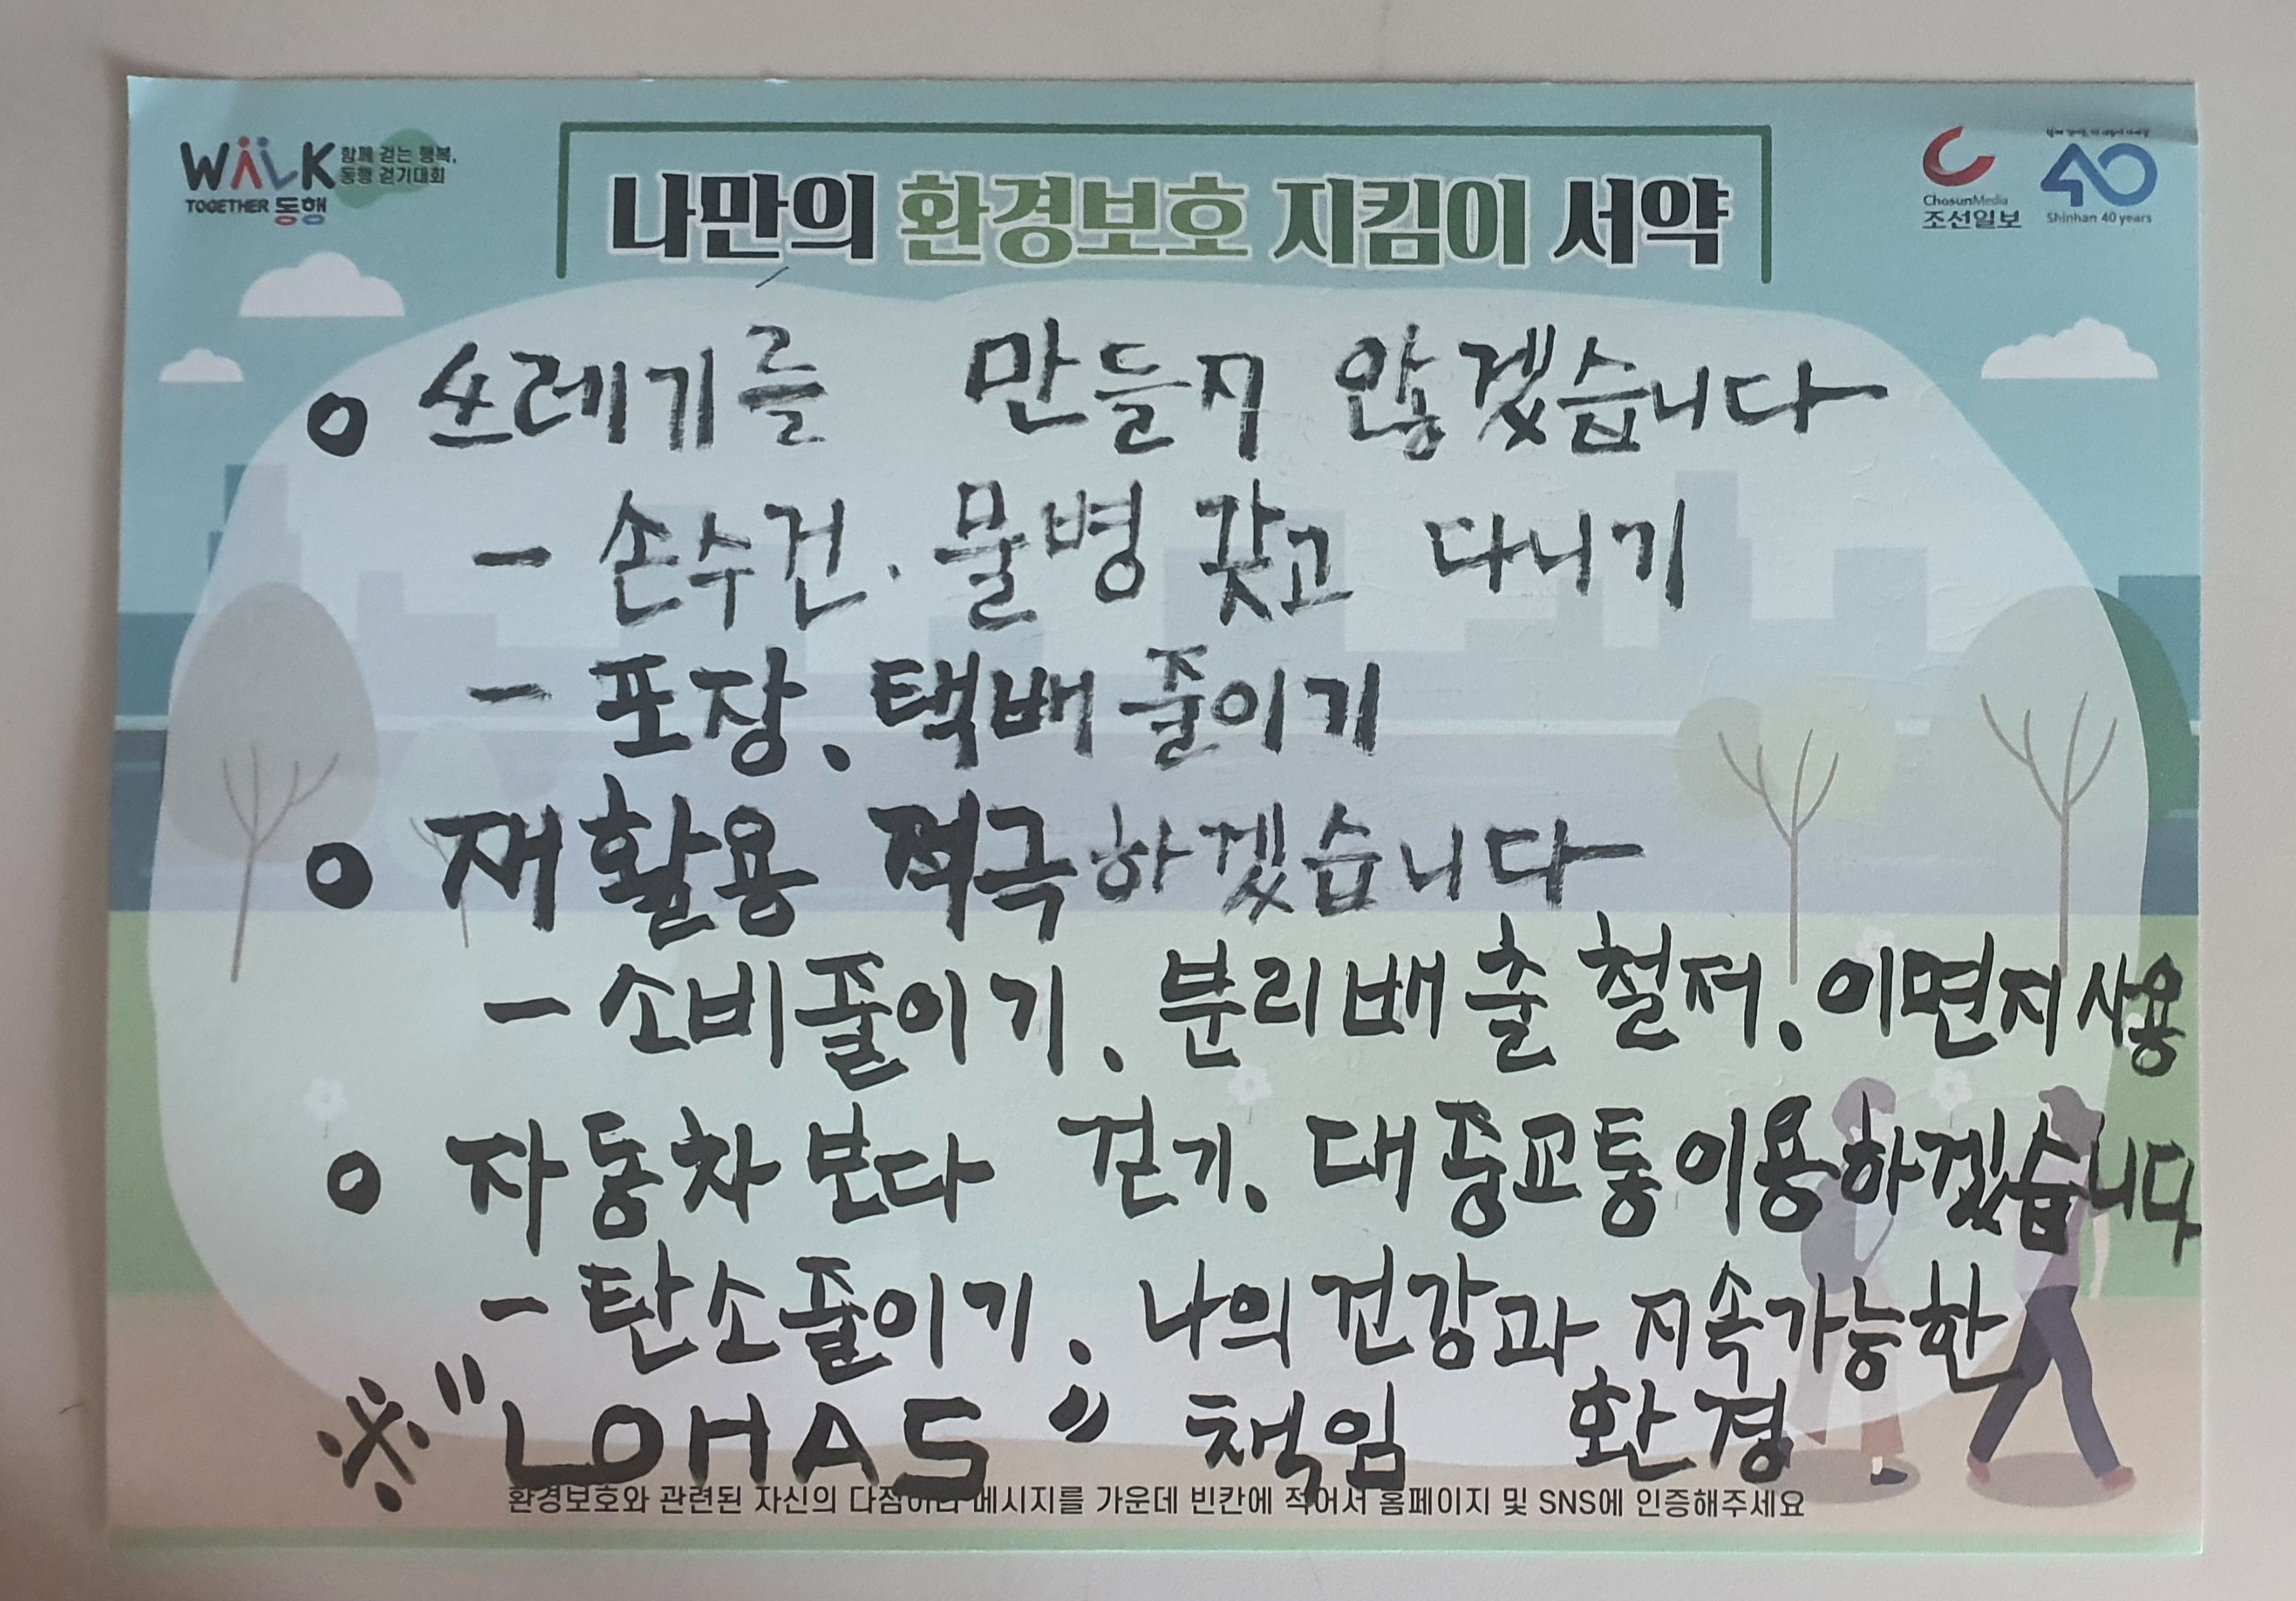 WALK 함께 걷는 행복,
TOGETHER 동행 동행 걷기대회
나만의 환경보호 지킴이 서약
ChosunMedia
조선일보
40
Shinhan 40 years
o 쓰레기를 만들지 않겠습니다
- 손수건. 물병 갖고 다니기
- 포장. 택배 줄이기
o 재활용 적극하겠습니다
- 소비줄이기. 분리배출 철저. 이면지사용
o 자동차보다 걷기. 대중교통이용하겠습니다
- 탄소줄이기. 나의건강과 지속가능한
※ "LOHAS" 책임 환경
환경보호와 관련된 자신의 다짐이나 메시지를 가운데 빈칸에 적어서 홈페이지 및 SNS에 인증해주세요